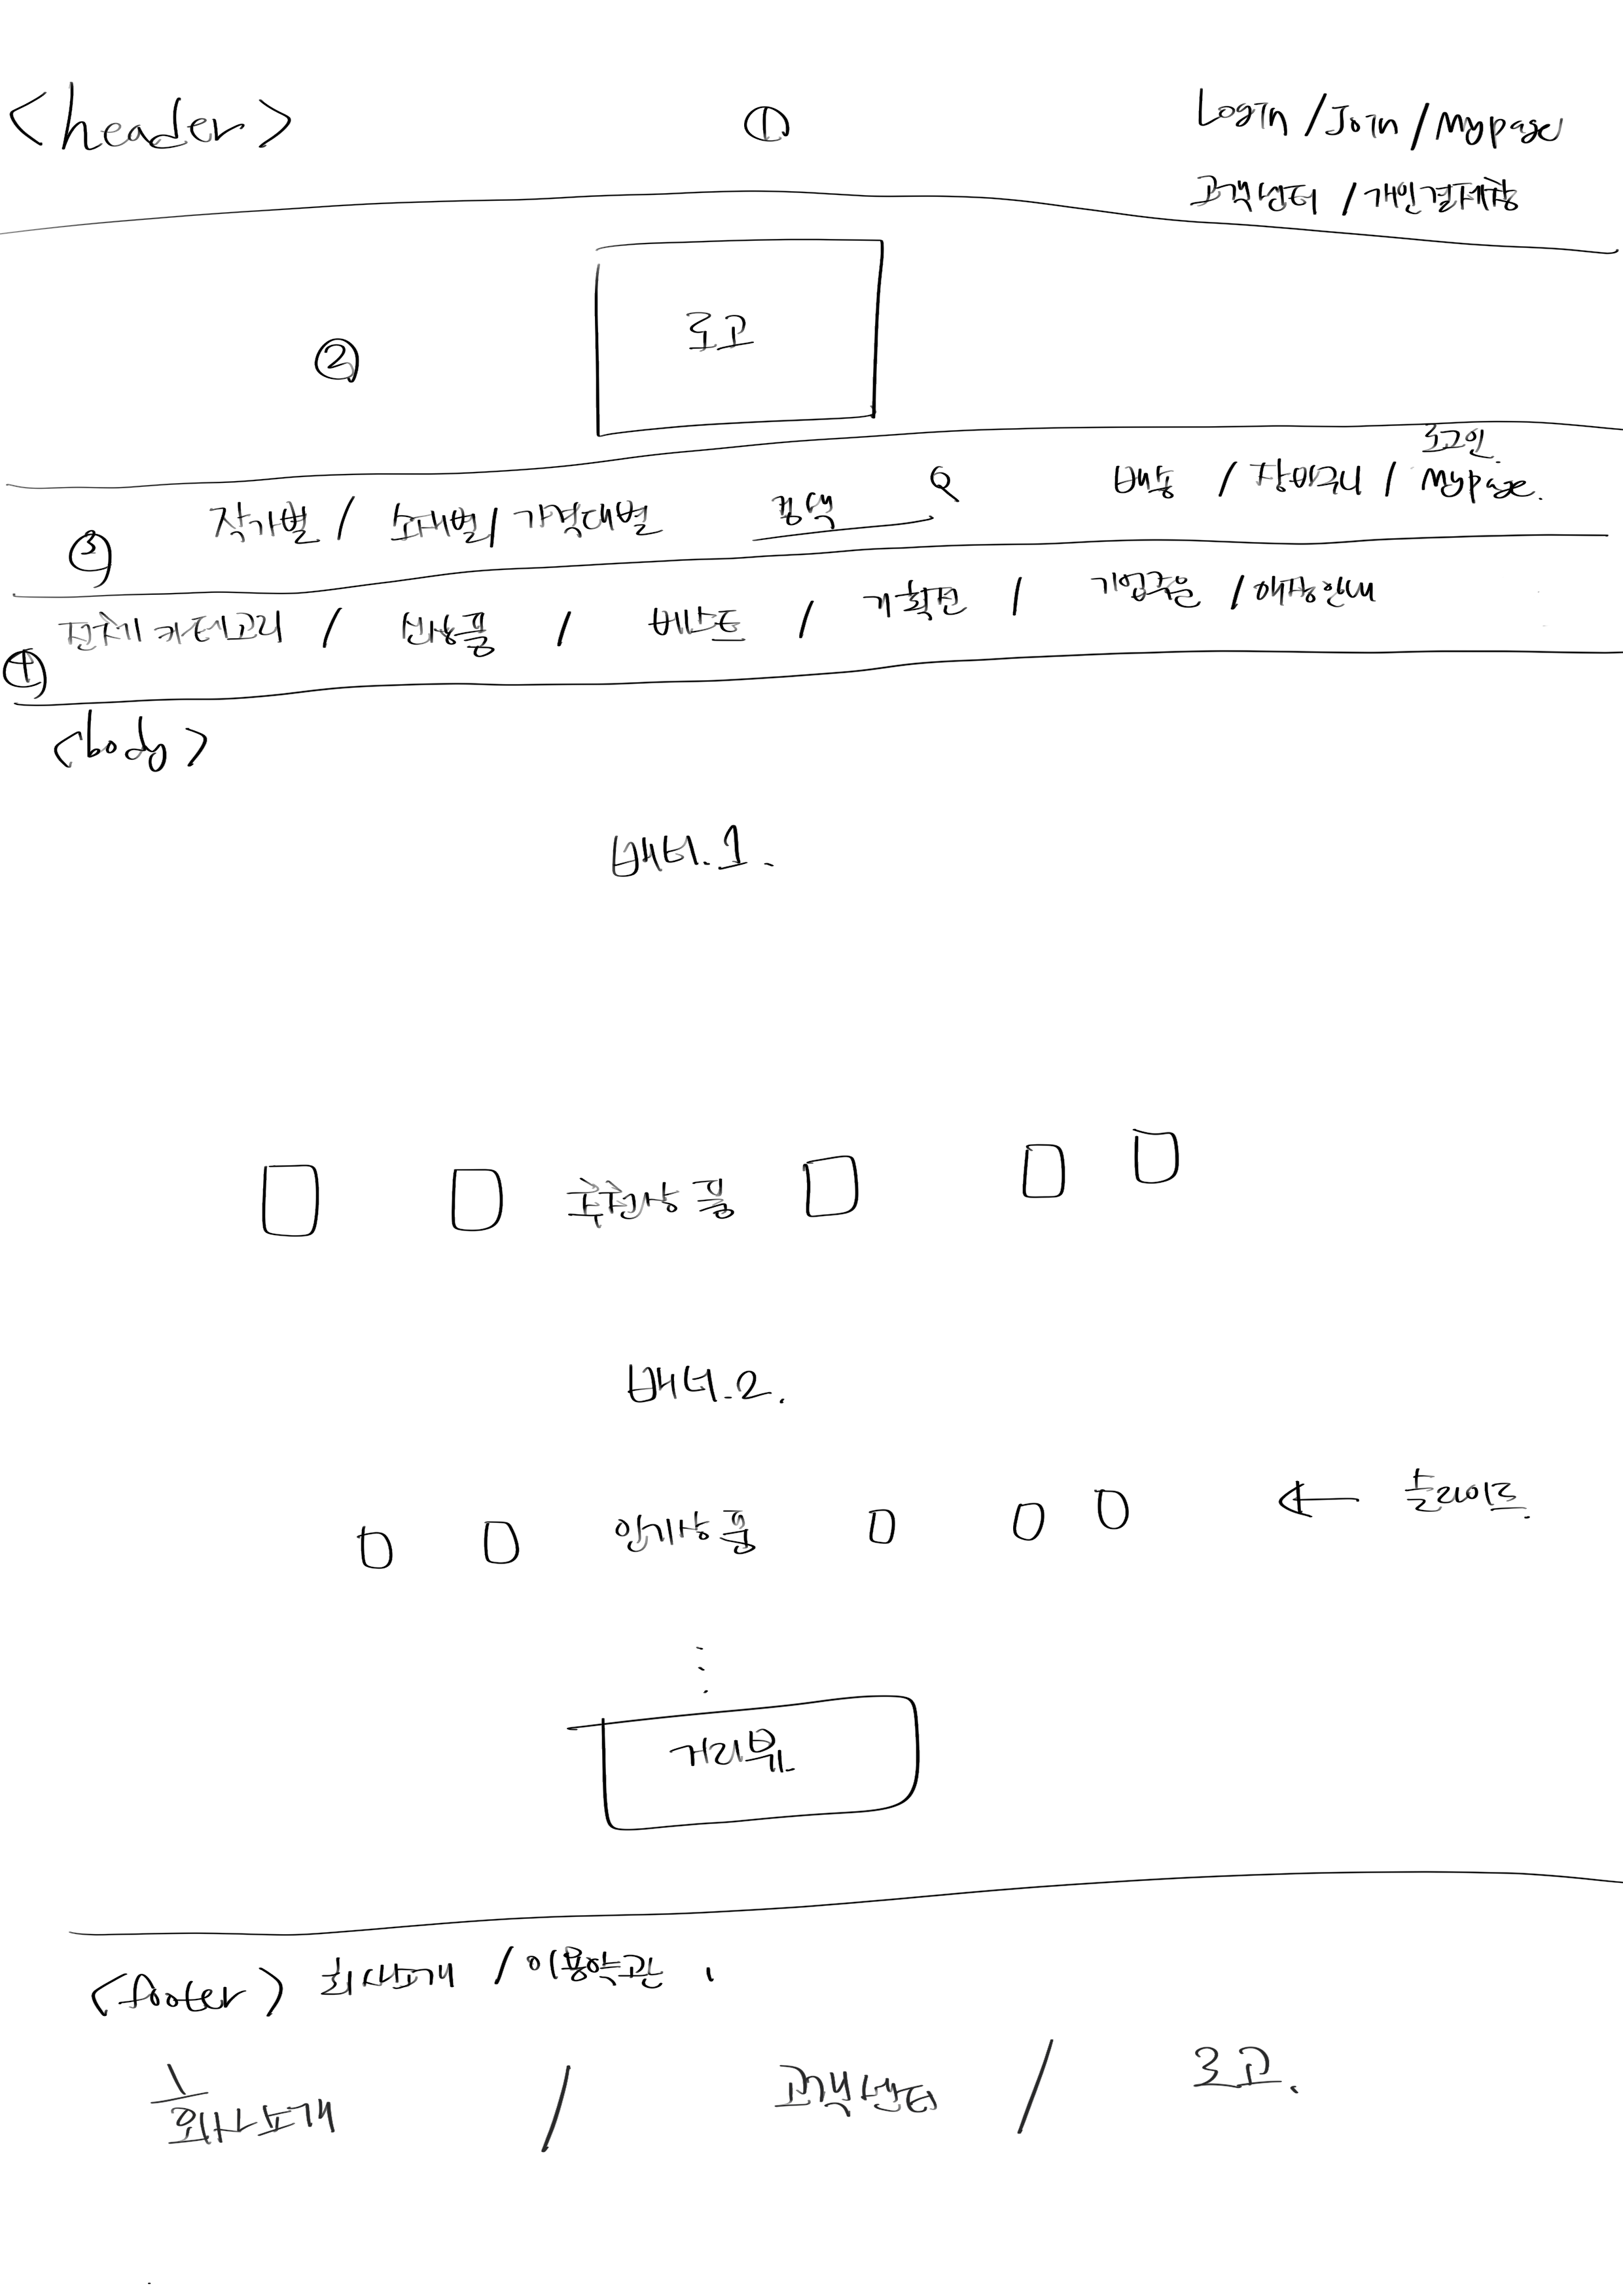 <header> ① Login / Join / Mypage
고객센터 / 개인결제창
로고
②
로그인.
작가별 / 소재별 / 가격대별 검색 배송 / 장바구니 / Mypage.
③
전체 카테고리 / 신상품 / 베스트 / 기획전 / 기업주문 / 매장안내
④
<body>
배너.1.
추천상품
배너.2.
인기상품 ← 슬라이드.
거리뷰.
<footer> 회사소개 / 이용약관
회사소개 / 고객센터 / 로고.